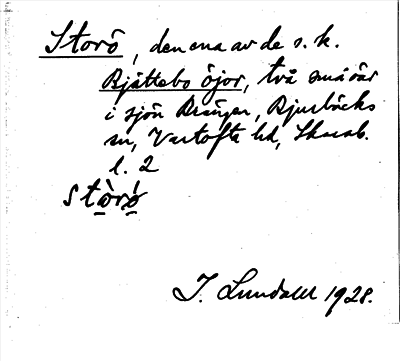 Storö, den ena av de s. k.
Bjättebo öjor, två småöar
i sjön Brängen, Bjurbäcks
sn, Vartofta hd, Skarab.
l. 2
stòrǿ
J. Lundahl 1928.